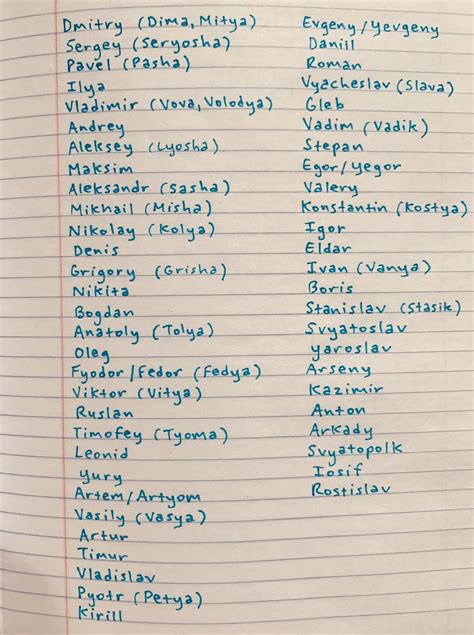 Dmitry (Dima, Mitya)
Sergey (Seryosha)
Pavel (Pasha)
Ilya
Vladimir (Vova, Volodya)
Andrey
Aleksey (Lyosha)
Maksim
Aleksandr (Sasha)
Mikhail (Misha)
Nikolay (Kolya)
Denis
Grigory (Grisha)
Nikita
Bogdan
Anatoly (Tolya)
Oleg
Fyodor/Fedor (Fedya)
Viktor (Vitya)
Ruslan
Timofey (Tyoma)
Leonid
Yury
Artem/Artyom
Vasily (Vasya)
Artur
Timur
Vladislav
Pyotr (Petya)
Kirill
Evgeny/Yevgeny
Daniil
Roman
Vyacheslav (Slava)
Gleb
Vadim (Vadik)
Stepan
Egor/Yegor
Valery
Konstantin (Kostya)
Igor
Eldar
Ivan (Vanya)
Boris
Stanislav (Stasik)
Svyatoslav
Yaroslav
Arseny
Kazimir
Anton
Arkady
Svyatopolk
Iosif
Rostislav